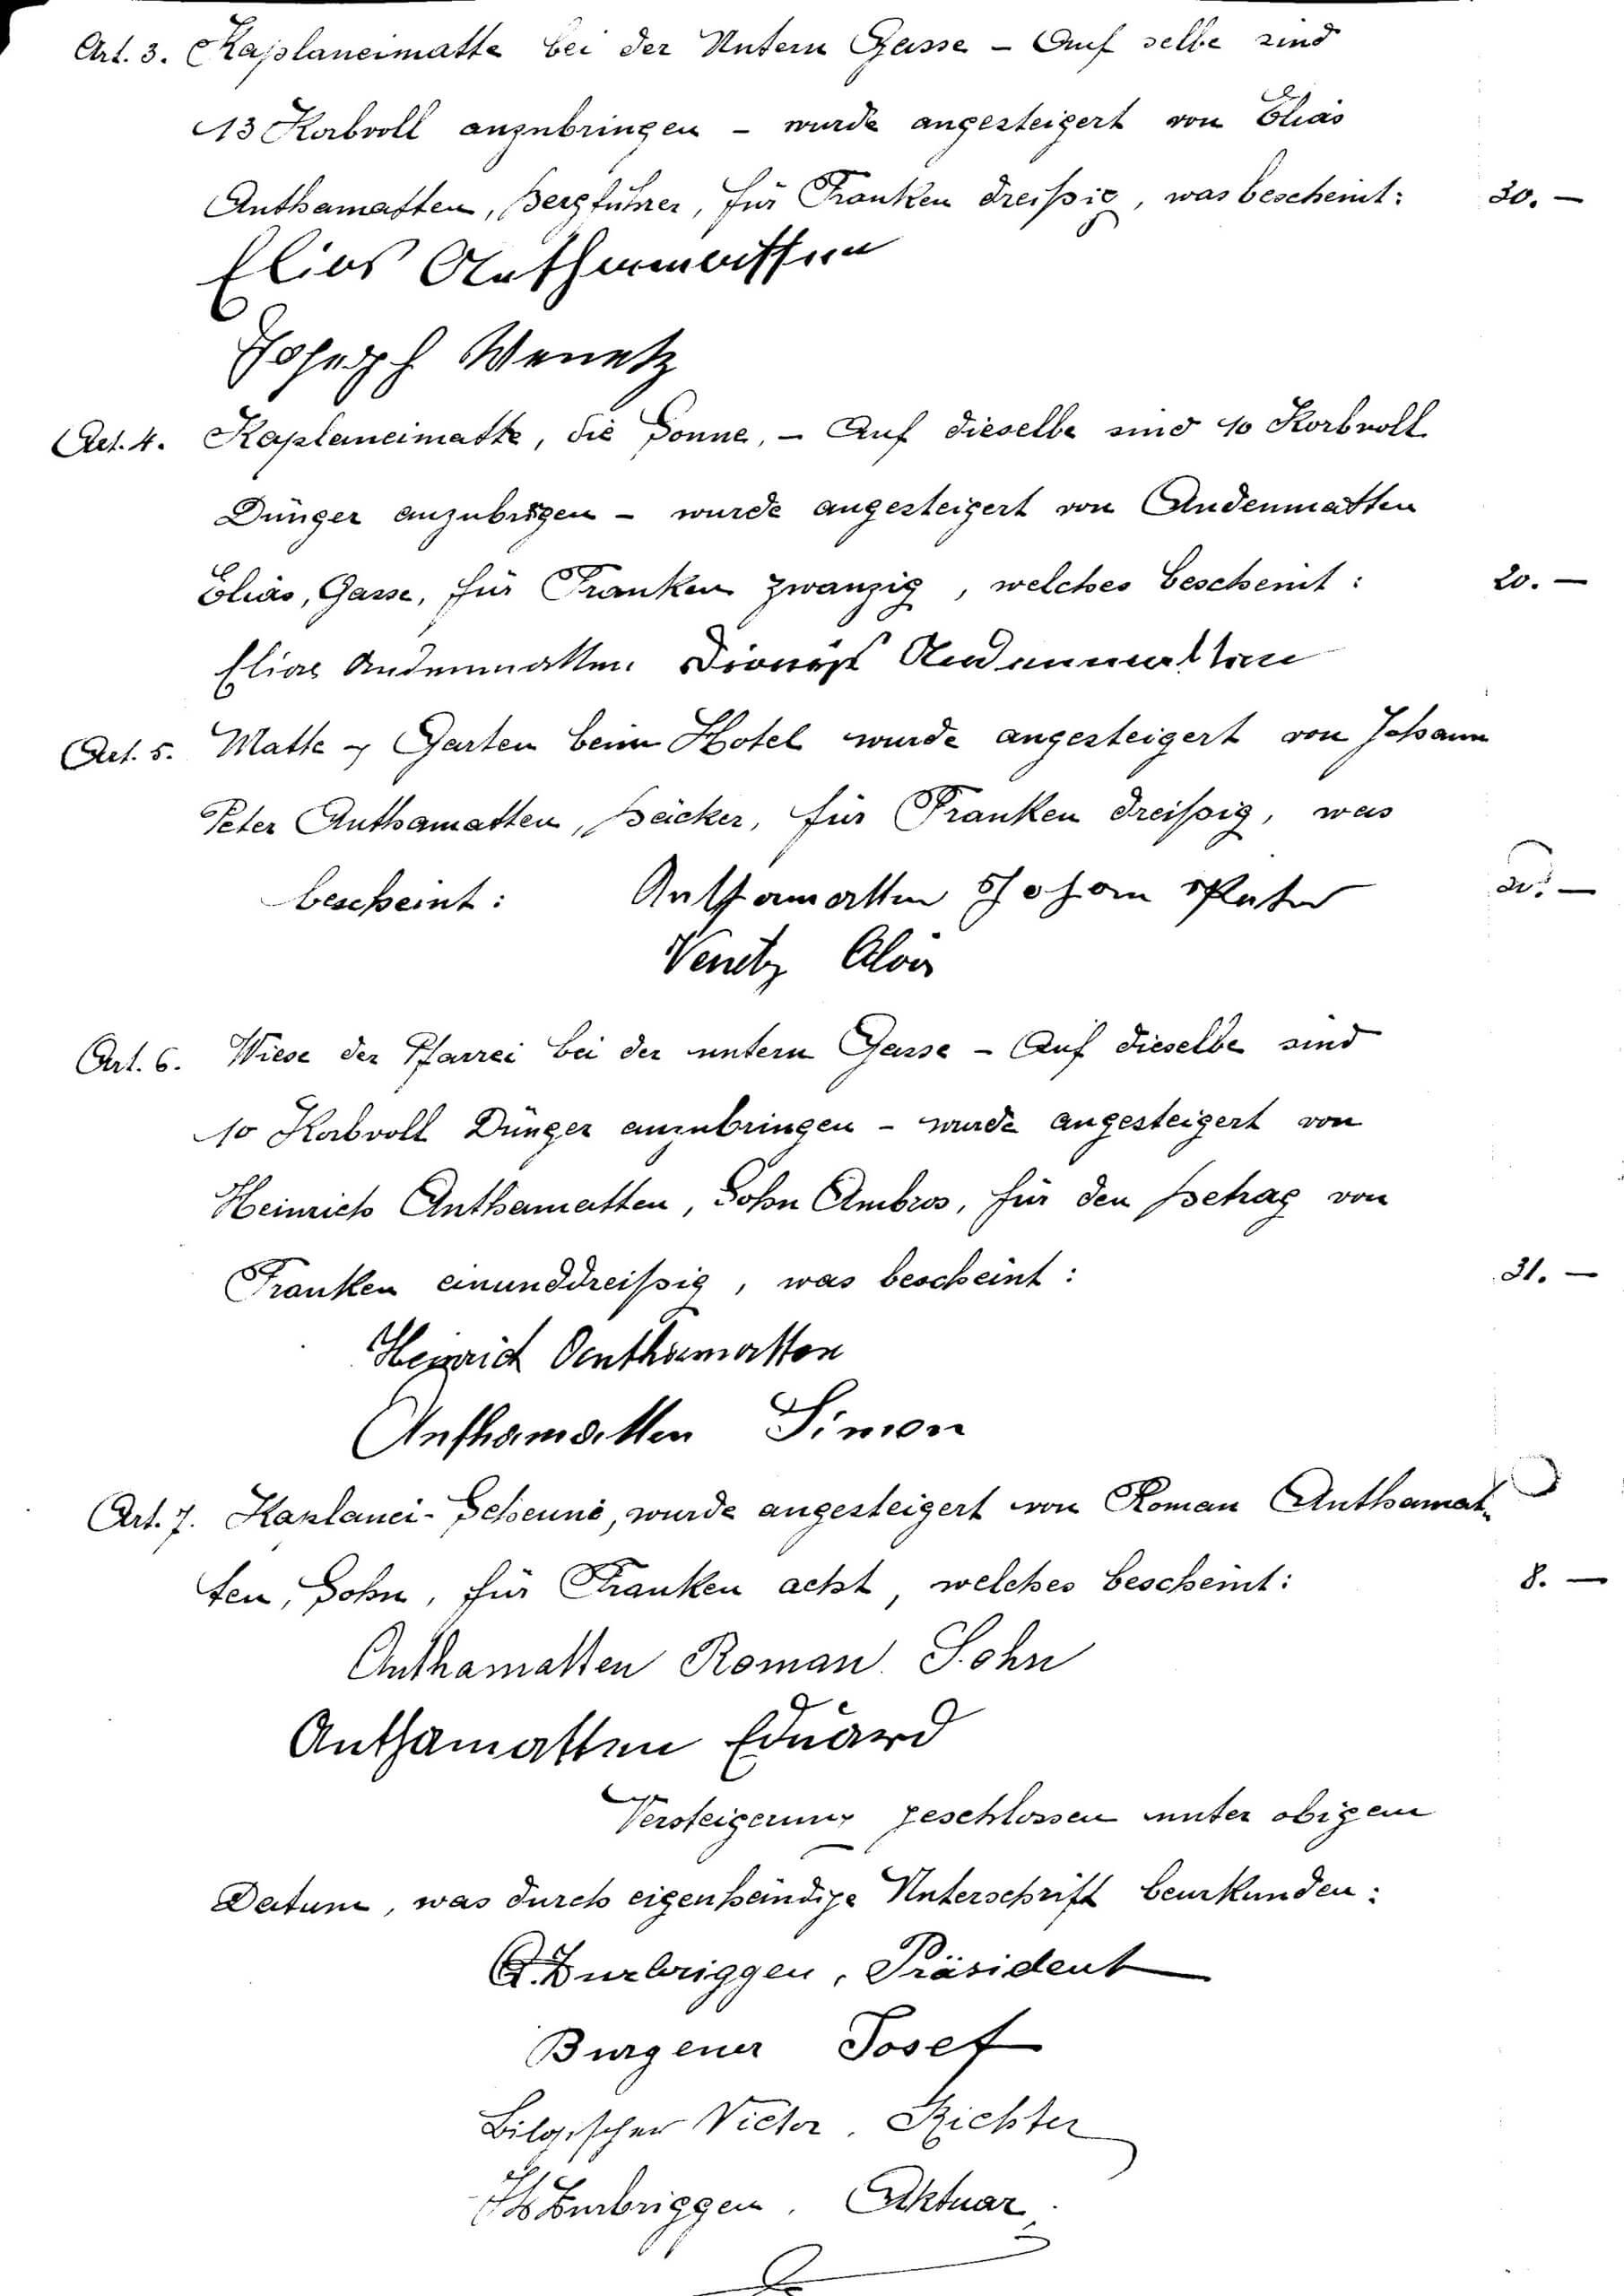 Art. 3. Kaplaneimatte bei der Untern Gasse – Auf selbe sind
13 Korbvoll anzubringen – wurde angesteigert von Elias
Anthamatten, Bergführer, für Franken dreißig, was bescheint: 30. —
Elias Anthamatten
Joseph Venetz
Art. 4. Kaplaneimatte, die Sonne, – Auf dieselbe sind 10 Korbvoll
Dünger anzubrigen – wurde angesteigert von Andenmatten
Elias, Gasse, für Franken zwanzig, welches bescheint: 20. —
Elias Andenmatten Dionis Andenmatten
Art. 5. Matte & Garten beim Hotel wurde angesteigert von Johann
Peter Anthamatten, Bäcker, für Franken dreißig, was
bescheint: Anthamatten Johan Peter 30. —
Venetz Alois
Art. 6. Wiese der Pfarrei bei der untern Gasse – Auf dieselbe sind
10 Korbvoll Dünger anzubringen – wurde angesteigert von
Heinrich Anthamatten, Sohn Ambros, für den Betrag von
Franken einunddreißig, was bescheint: 31. —
Heinrich Anthamatten
Anthamatten Simon
Art. 7. Kaplanei-Scheune, wurde angesteigert von Roman Anthamat-
ten, Sohn, für Franken acht, welches bescheint: 8. —
Anthamatten Roman Sohn
Anthamatten Eduard
Versteigerung geschlossen unter obigem
Datum, was durch eigenhändige Unterschrift beurkunden:
Zurbriggen, Präsident
Burgener Josef
Bilgischer Victor, Richter
Zurbriggen, Aktuar